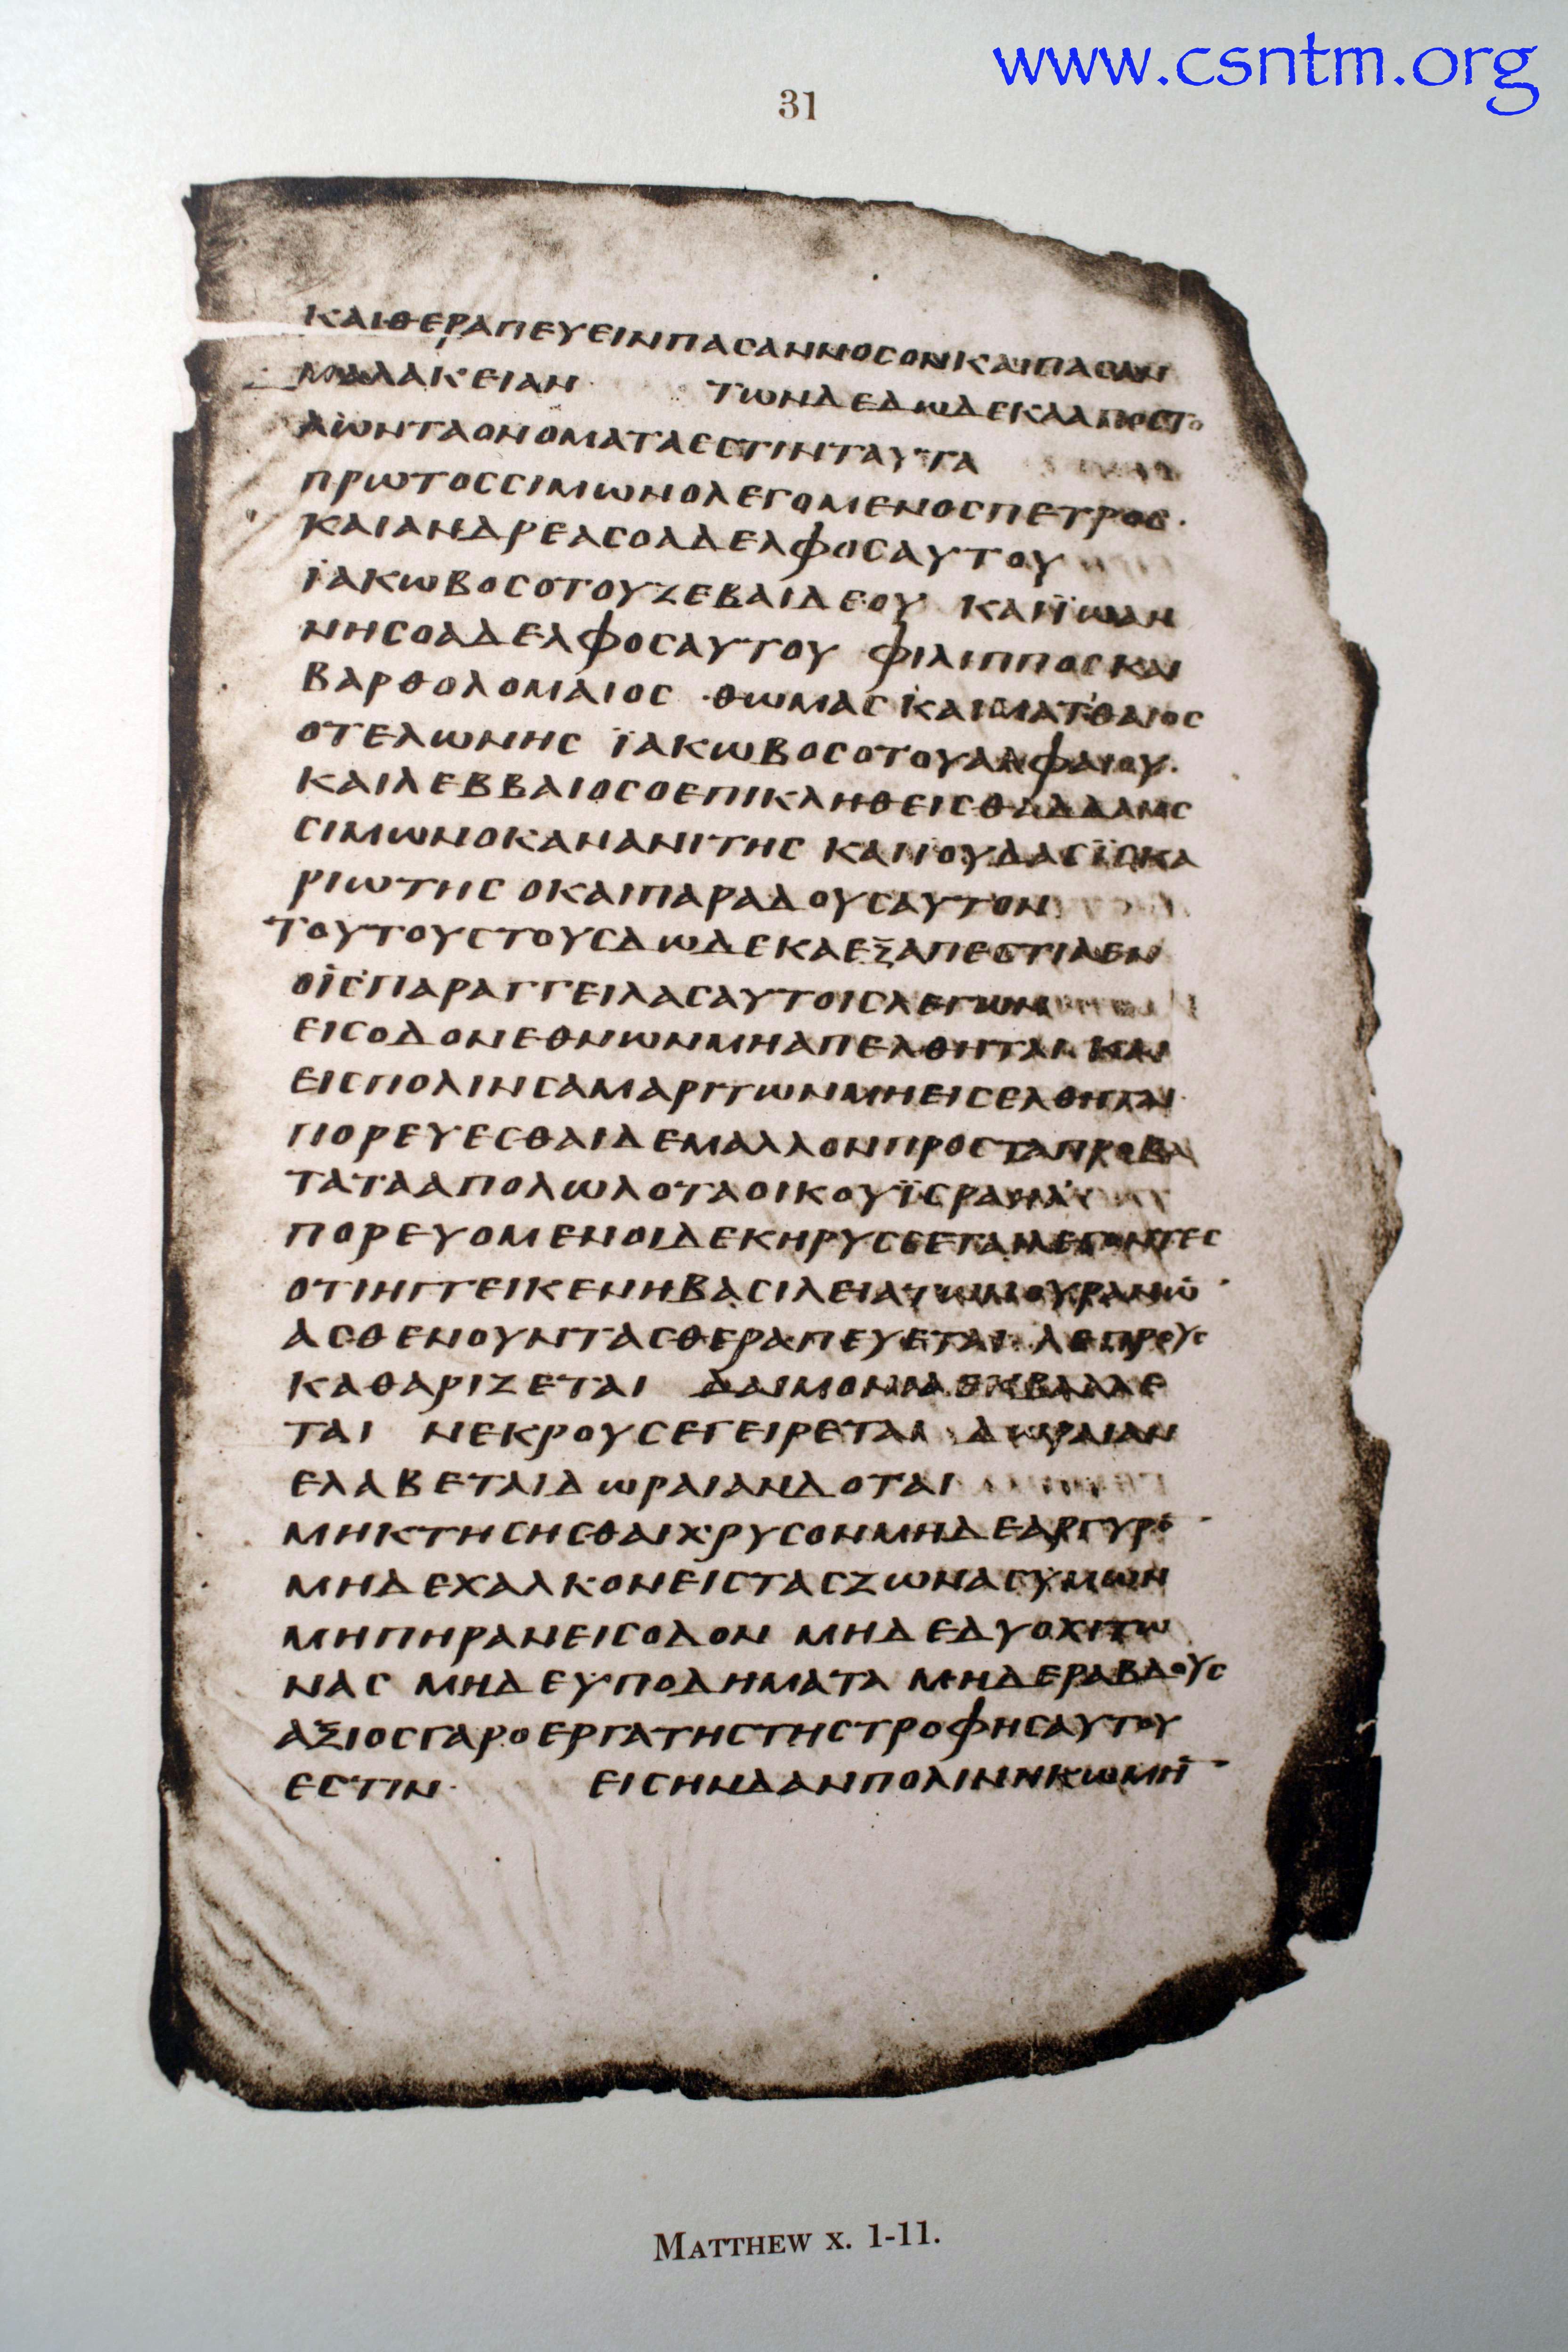 www.csntm.org
31
ΚΑΙΘΕΡΑΠΕΥΕΙΝΠΑСΑΝΝΟСΟΝΚΑΙΠΑСΑΝ
ΜΑΛΑΚΕΙΑΝ· ΤωΝΔΕΔωΔΕΚΑΑΠΟСΤΟ
ΛωΝΤΑΟΝΟΜΑΤΑΕСΤΙΝΤΑΥΤΑ
ΠΡωΤΟССΙΜωΝΟΛΕΓΟΜΕΝΟСΠΕΤΡΟС·
ΚΑΙΑΝΔΡΕΑСΟΑΔΕΛΦΟСΑΥΤΟΥ
ΪΑΚωΒΟСΟΤΟΥΖΕΒΑΙΔΕΟΥ ΚΑΙΪωΑΝ
ΝΗСΟΑΔΕΛΦΟСΑΥΤΟΥ ΦΙΛΙΠΠΟСΚΑΙ
ΒΑΡΘΟΛΟΜΑΙΟС ·ΘωΜΑСΚΑΙΜΑΤΘΑΙΟС
ΟΤΕΛωΝΗС ΪΑΚωΒΟСΟΤΟΥΑΛΦΑΙΟΥ·
ΚΑΙΛΕΒΒΑΙΟСΟΕΠΙΚΛΗΘΕΙСΘΑΔΔΑΙΟС
СΙΜωΝΟΚΑΝΑΝΙΤΗС ΚΑΙΪΟΥΔΑСΪСΚΑ
ΡΙωΤΗС ΟΚΑΙΠΑΡΑΔΟΥСΑΥΤΟΝ
ΤΟΥΤΟΥСΤΟΥСΔωΔΕΚΑΕΞΑΠΕСΤΙΛΕΝ
ΟΪСΠΑΡΑΓΓΕΙΛΑСΑΥΤΟΙСΛΕΓωΝ
ΕΙСΟΔΟΝΕΘΝωΝΜΗΑΠΕΛΘΗΤΑΙ ΚΑΙ
ΕΙСΠΟΛΙΝСΑΜΑΡΙΤωΝΜΗΕΙСΕΛΘΗΤΑΙ·
ΠΟΡΕΥΕСΘΑΙΔΕΜΑΛΛΟΝΠΡΟСΤΑΠΡΟΒΑ
ΤΑΤΑΑΠΟΛωΛΟΤΑΟΙΚΟΥΪСΡΑΗΛ
ΠΟΡΕΥΟΜΕΝΟΙΔΕΚΗΡΥССΕΤΑΙΛΕΓΟΝΤΕС
ΟΤΙΗΓΓΕΙΚΕΝΗΒΑСΙΛΕΙΑΤωΝΟΥΡΑΝω̅
ΑСΘΕΝΟΥΝΤΑСΘΕΡΑΠΕΥΕΤΑΙ· ΛΕΠΡΟΥС
ΚΑΘΑΡΙΖΕΤΑΙ ΔΑΙΜΟΝΙΑΕΚΒΑΛΛΕ
ΤΑΙ ΝΕΚΡΟΥСΕΓΕΙΡΕΤΑΙ ΔωΡΑΙΑΝ
ΕΛΑΒΕΤΑΙΔωΡΑΙΑΝΔΟΤΑΙ
ΜΗΚΤΗСΗСΘΑΙΧΡΥСΟΝΜΗΔΕΑΡΓΥΡΟ̅
ΜΗΔΕΧΑΛΚΟΝΕΙСΤΑСΖωΝΑСΥΜωΝ
ΜΗΠΗΡΑΝΕΙСΟΔΟΝ ΜΗΔΕΔΥΟΧΙΤω
ΝΑС ΜΗΔΕΥΠΟΔΗΜΑΤΑ ΜΗΔΕΡΑΒΔΟΥС
ΑΞΙΟСΓΑΡΟΕΡΓΑΤΗСΤΗСΤΡΟΦΗСΑΥΤΟΥ
ΕСΤΙΝ· ΕΙСΗΝΔΑΝΠΟΛΙΝΗΚωΜΗ̅
Matthew x. 1-11.